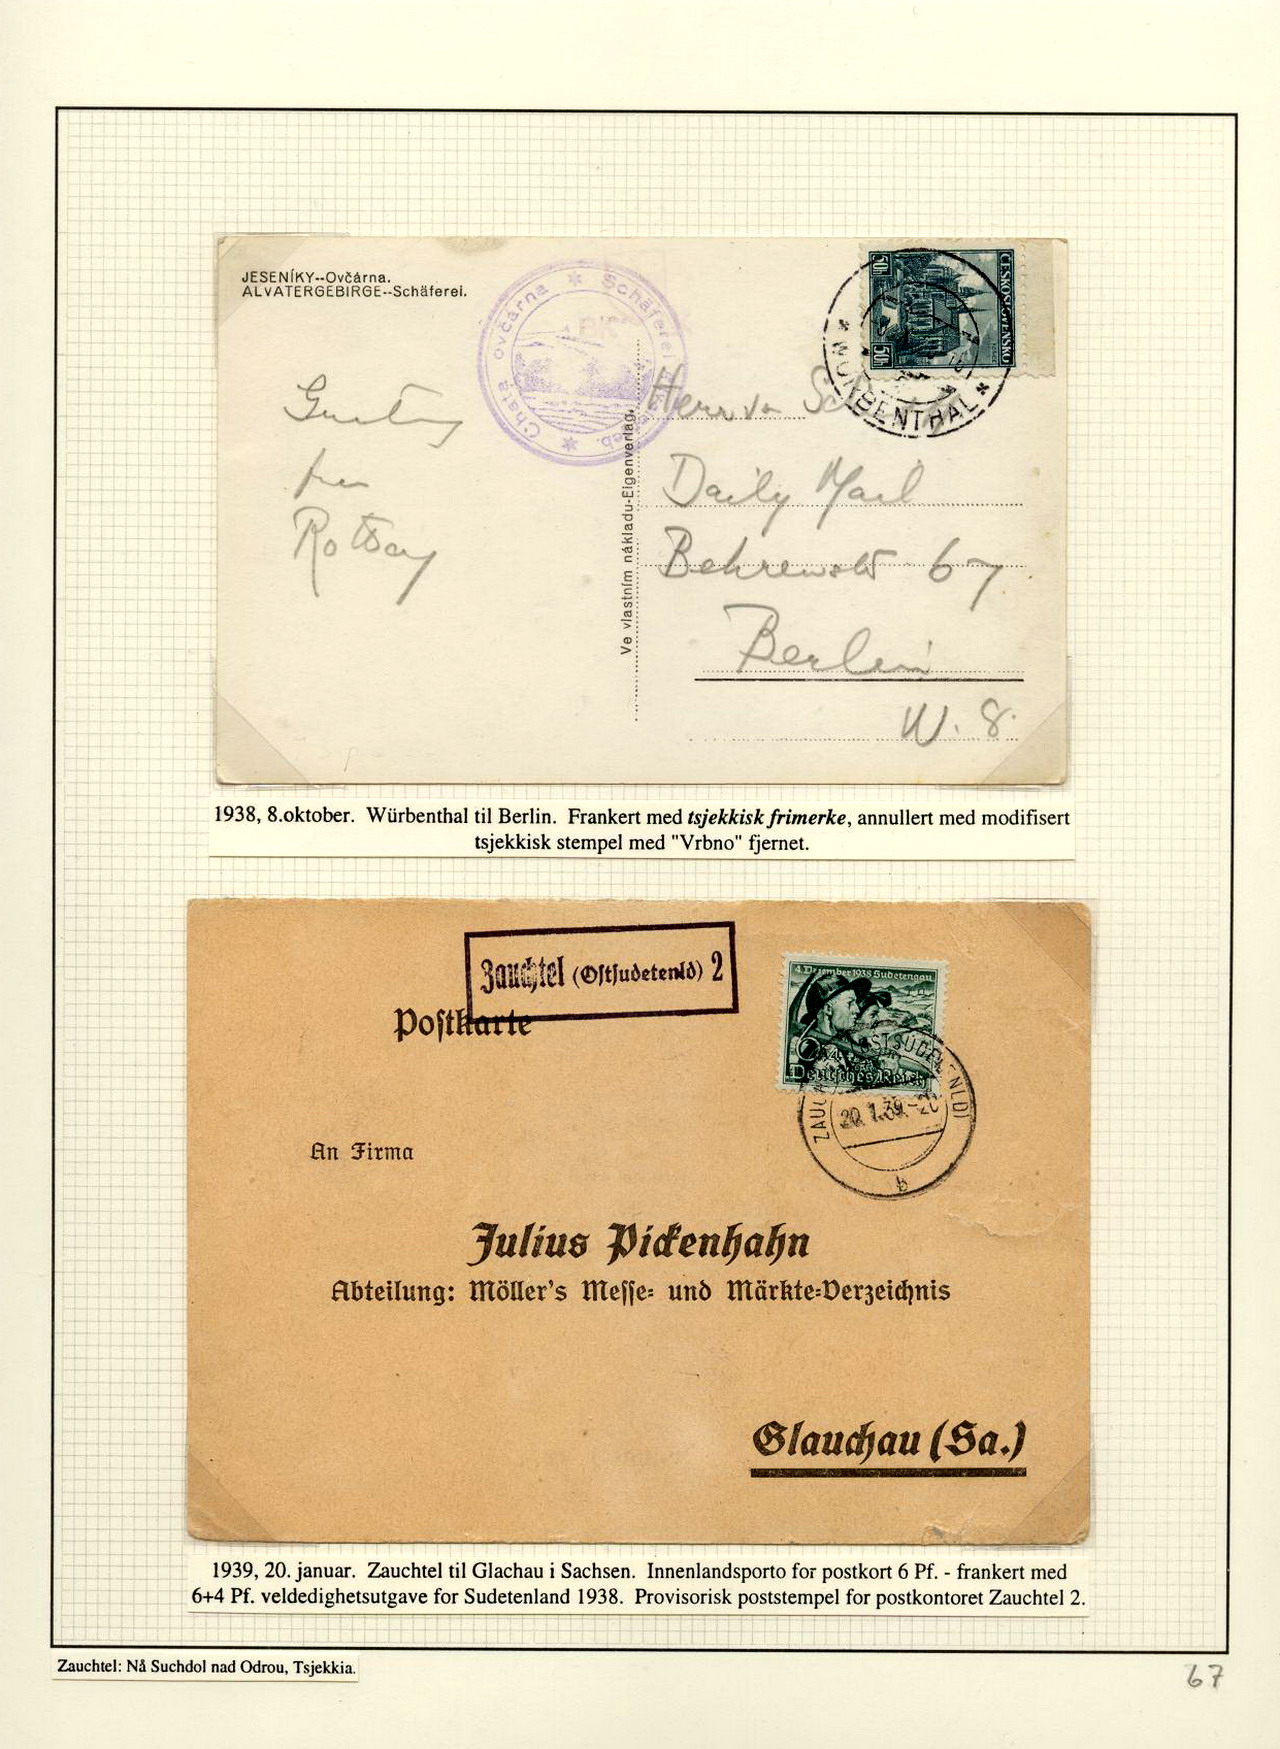 JESENÍKY--Ovčárna.
ALVATERGEBIRGE--Schäferei.
Chata ovčárna * Schäferei
ČESKOSLOVENSKO
50h
50h
WÜRBENTHAL
Ve vlastním nákladu-Eigenverlag.
Herr v.
Daily Mail
67
Berlin
W. 8.
1938, 8.oktober. Würbenthal til Berlin. Frankert med tsjekkisk frimerke, annullert med modifisert
tsjekkisk stempel med "Vrbno" fjernet.
Zauchtel (Ostsudetenld) 2
Postkarte
4. Dezember 1938 Sudetengau
Deutsches Reich
20.1.39.-20
b
An Firma
Julius Pickenhahn
Abteilung: Möller's Messe- und Märkte-Verzeichnis
Glauchau (Sa.)
1939, 20. januar. Zauchtel til Glachau i Sachsen. Innenlandsporto for postkort 6 Pf. - frankert med
6+4 Pf. veldedighetsutgave for Sudetenland 1938. Provisorisk poststempel for postkontoret Zauchtel 2.
Zauchtel: Nå Suchdol nad Odrou, Tsjekkia.
67